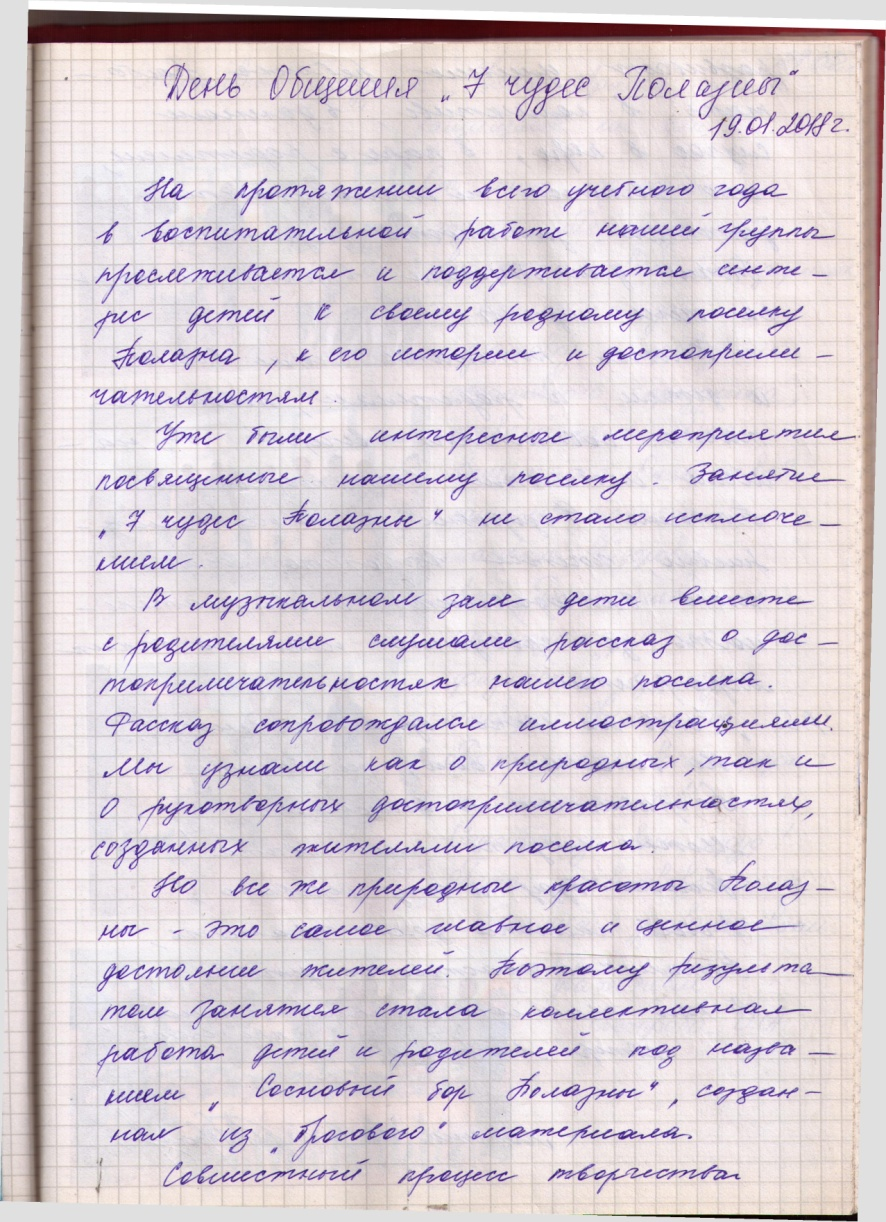 День Общения „7 чудес Полазны“
19.01.2018 г.
На протяжении всего учебного года
в воспитательной работе нашей группы
прослеживается и поддерживается инте-
рес детей к своему родному поселку
Полазна, к его истории и достоприме-
чательностям.
Уже были интересные мероприятия
посвященные нашему поселку. Занятие
„7 чудес Полазны“ не стало исключе-
нием.
В музыкальном зале дети вместе
с родителями слушали рассказ о дос-
топримечательностях нашего поселка.
Рассказ сопровождался иллюстрациями.
Мы узнали как о природных, так и
о рукотворных достопримечательностях,
созданных жителями поселка.
Но все же природные красоты Полаз-
ны - это самое главное и ценное
достояние жителей. Поэтому результа-
том занятия стала коллективная
работа детей и родителей под назва-
нием „Сосновый бор Полазны“, создан-
ная из „бросового“ материала.
Совместный процесс творчества